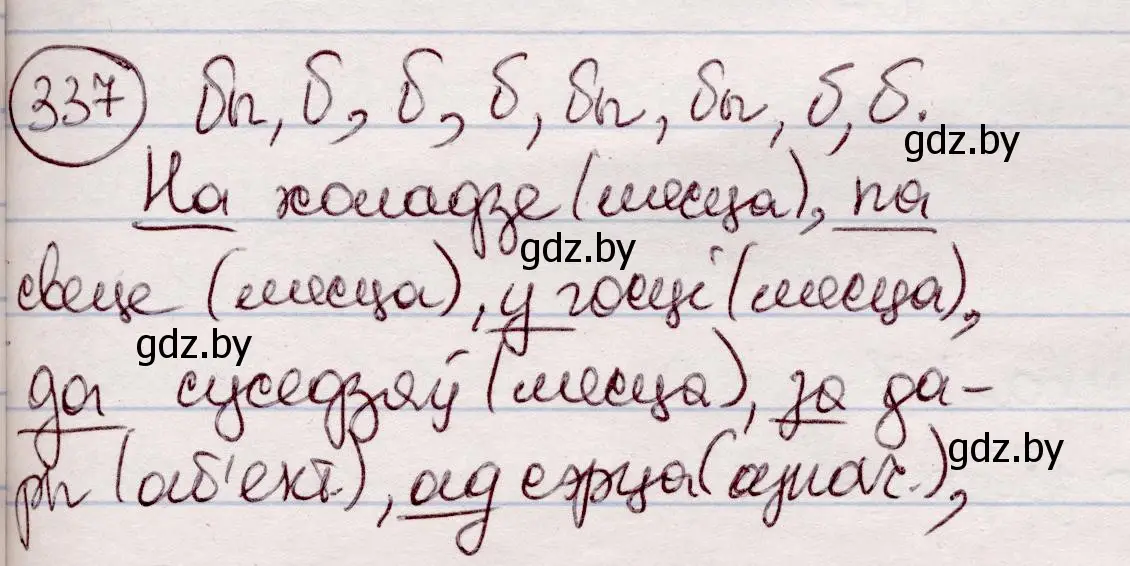 337 бы, б, б, б, бы, бы, б, б.
gdz.by
На холадзе (месца), па
gdz.by
свеце (месца), у госці (месца),
gdz.by
да суседзяў (месца), за да-
gdz.by
ры (аб'ект.), ад сэрца (азнач.),